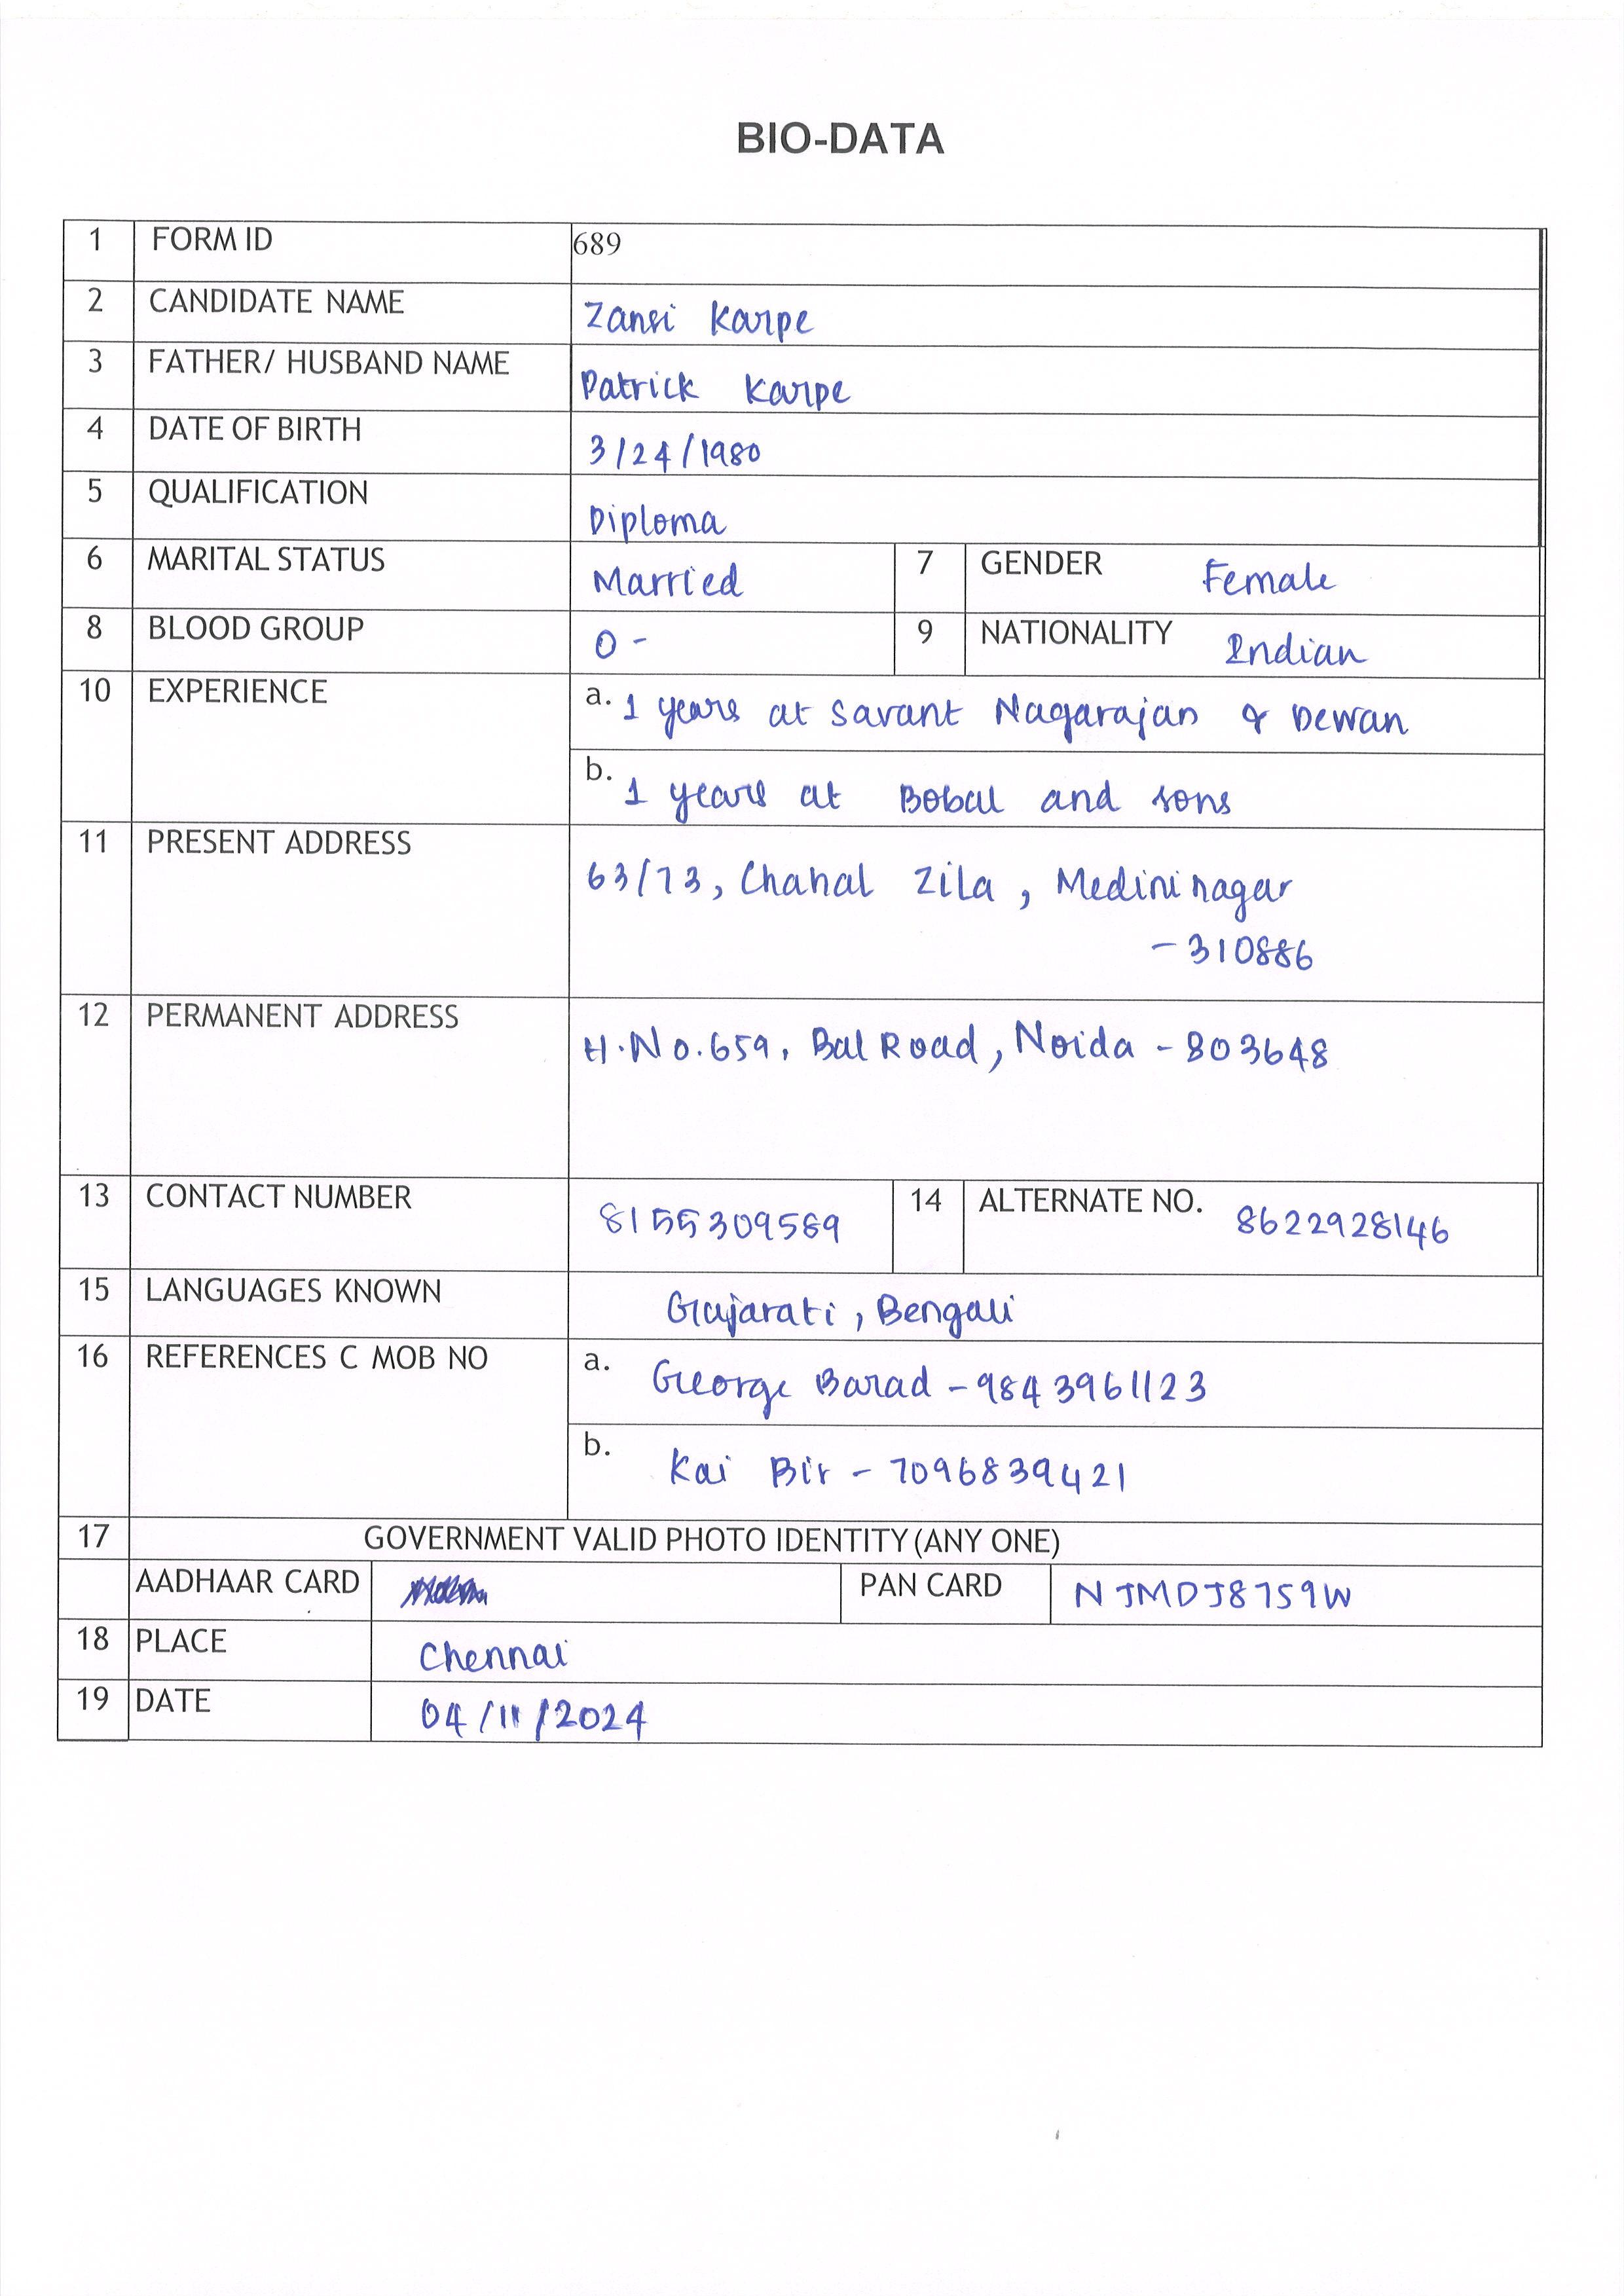 BIO-DATA
1 FORM ID 689
2 CANDIDATE NAME Zansi Karpe
3 FATHER/ HUSBAND NAME Patrick Karpe
4 DATE OF BIRTH 3/24/1980
5 QUALIFICATION Diploma
6 MARITAL STATUS Married 7 GENDER Female
8 BLOOD GROUP O - 9 NATIONALITY Indian
10 EXPERIENCE a. 1 years at Savant Nagarajan & Dewan
b. 1 years at Bobal and sons
11 PRESENT ADDRESS 63/73, Chahal Zila, Medininagar
- 310886
12 PERMANENT ADDRESS H.No.659, Bal Road, Noida - 803648
13 CONTACT NUMBER 8155309589 14 ALTERNATE NO. 8622928146
15 LANGUAGES KNOWN Gujarati, Bengali
16 REFERENCES C MOB NO a. George Barad - 9843961123
b. Kai Bir - 7096839421
17 GOVERNMENT VALID PHOTO IDENTITY (ANY ONE)
AADHAAR CARD PAN CARD NJMDJ8759W
18 PLACE Chennai
19 DATE 04/11/2024